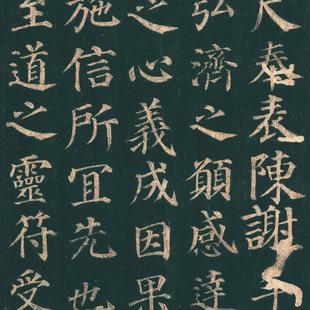 奉表陳謝
弘濟之願感達
之心義成因果
施信所冝先也
至道之靈符受